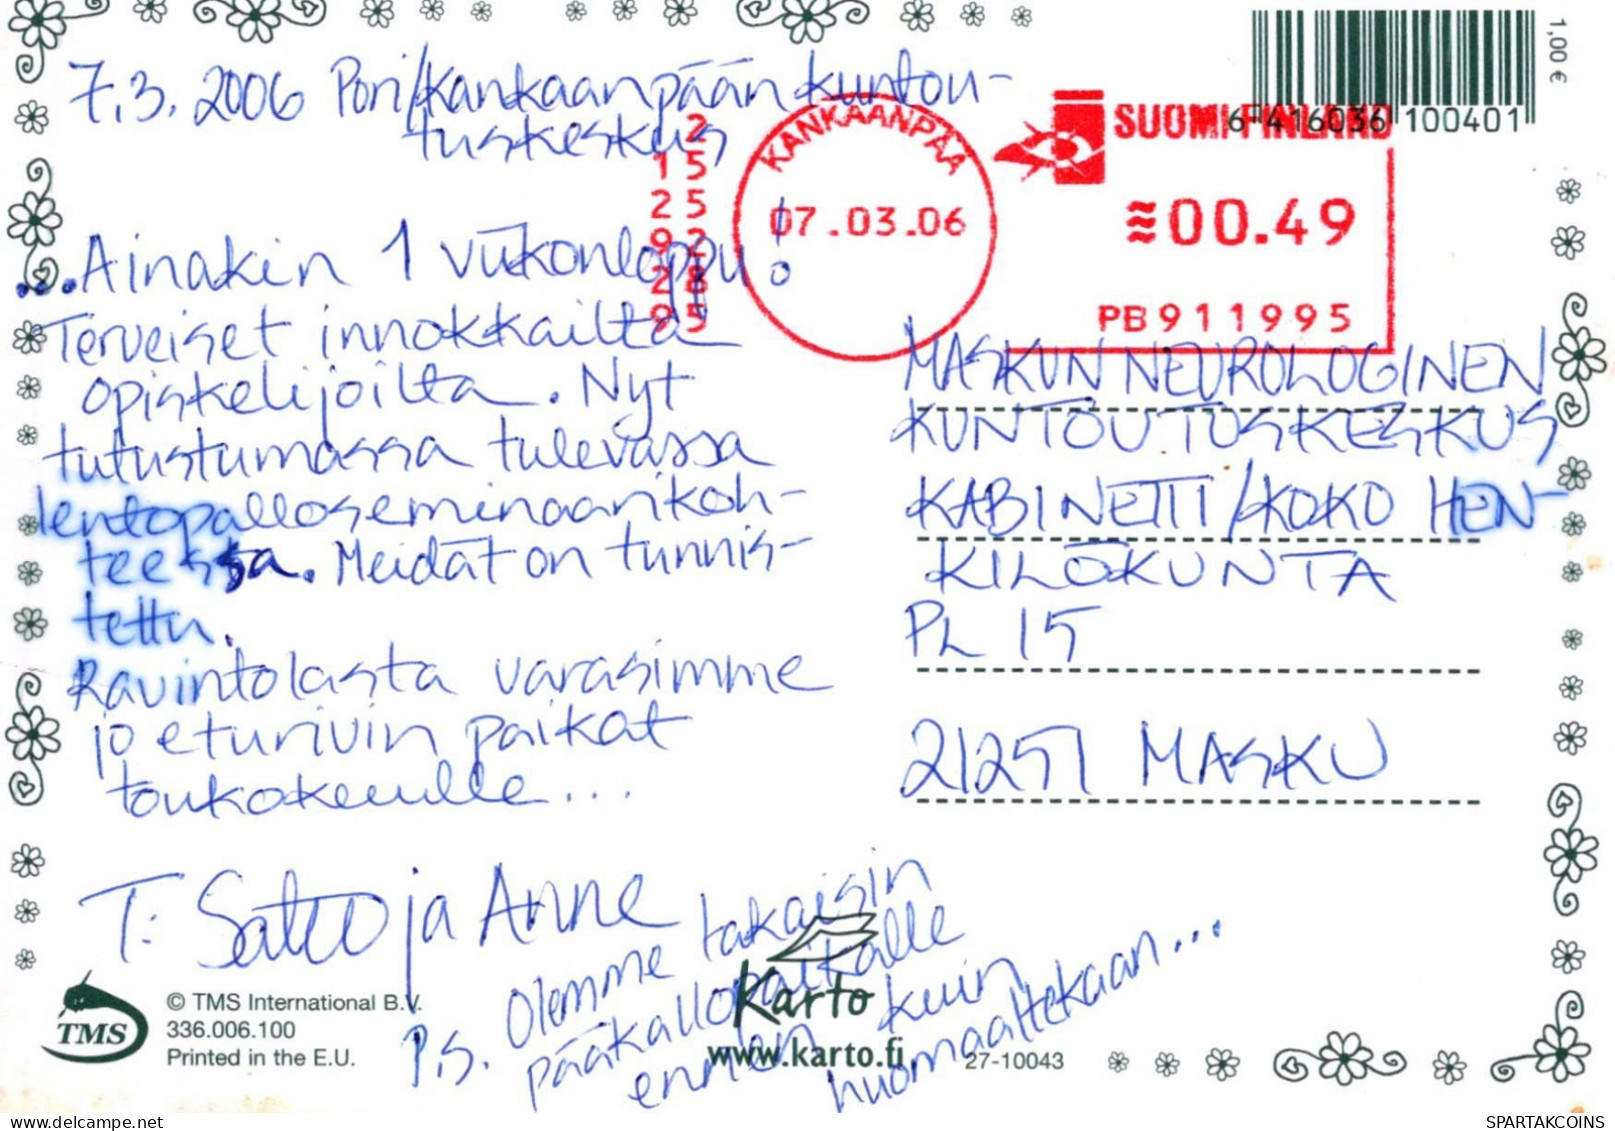 7.3. 2006 Pori/Kankaanpään kuntou-
tuskeskus
...Ainakin 1 viikonloppu!
Terveiset innokkailta
opiskelijoilta. Nyt
tutustumassa tulevassa
lentopalloseminaarikoh-
teessa. Meidät on tunnis-
tettu.
Ravintolasta varasimme
jo eturivin paikat
toukokuulle...
T: Satu ja Anne
P.S. Olemme takaisin
pääkallopaikalle
ennen kuin
huomaattekaan...
2
15
25
92
28
95
KANKAANPÄÄ
07.03.06
SUOMI-FINLAND
00.49
PB911995
6 416036 100401
1,00 €
MASKUN NEUROLOGINEN
KUNTOUTUSKESKUS
KABINETTI/KOKO HEN-
KILÖKUNTA
PL 15
21251 MASKU
TMS
© TMS International B.V.
336.006.100
Printed in the E.U.
Karto
www.karto.fi
27-10043
osta-delcampe.net
SPARTAKCOINS